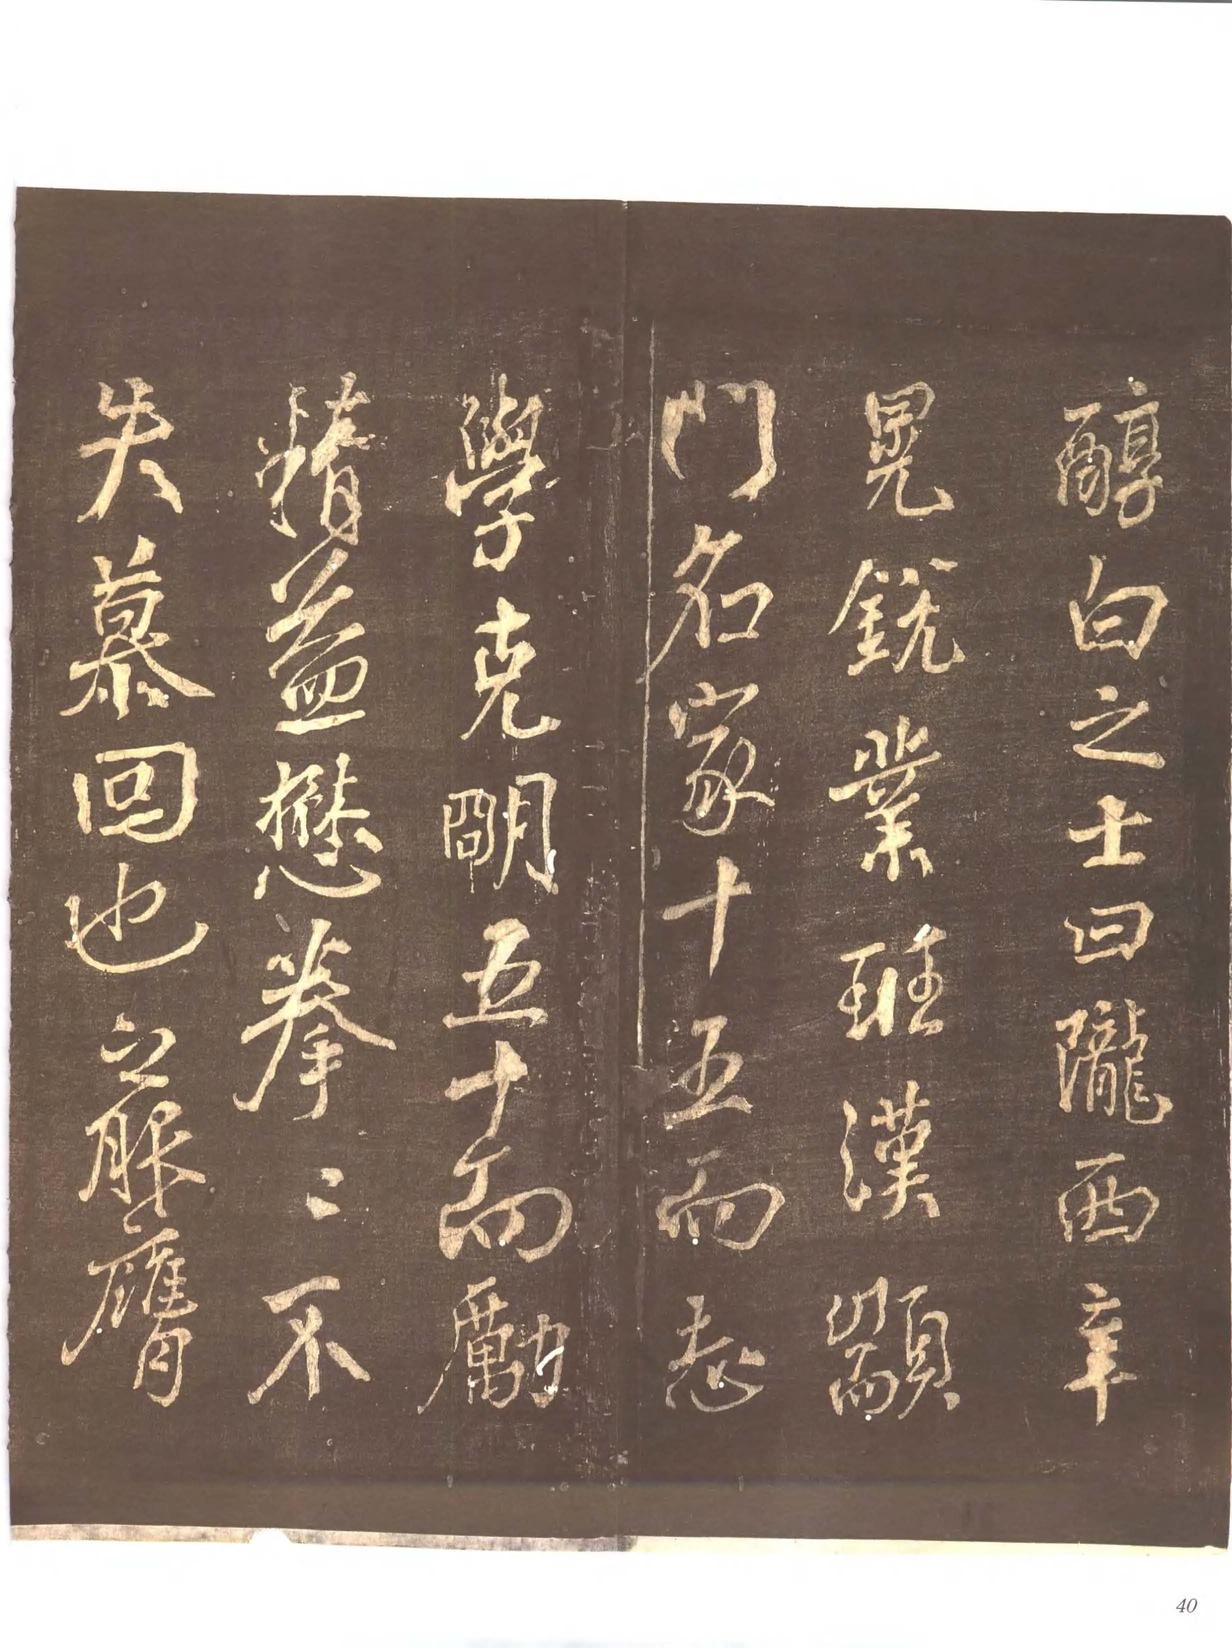 醇白之士曰隴西辛
晃銳業班漢顓
門名家十五而志
學克明五十而勵
精益懋拳〻不
失慕回也之服膺
40